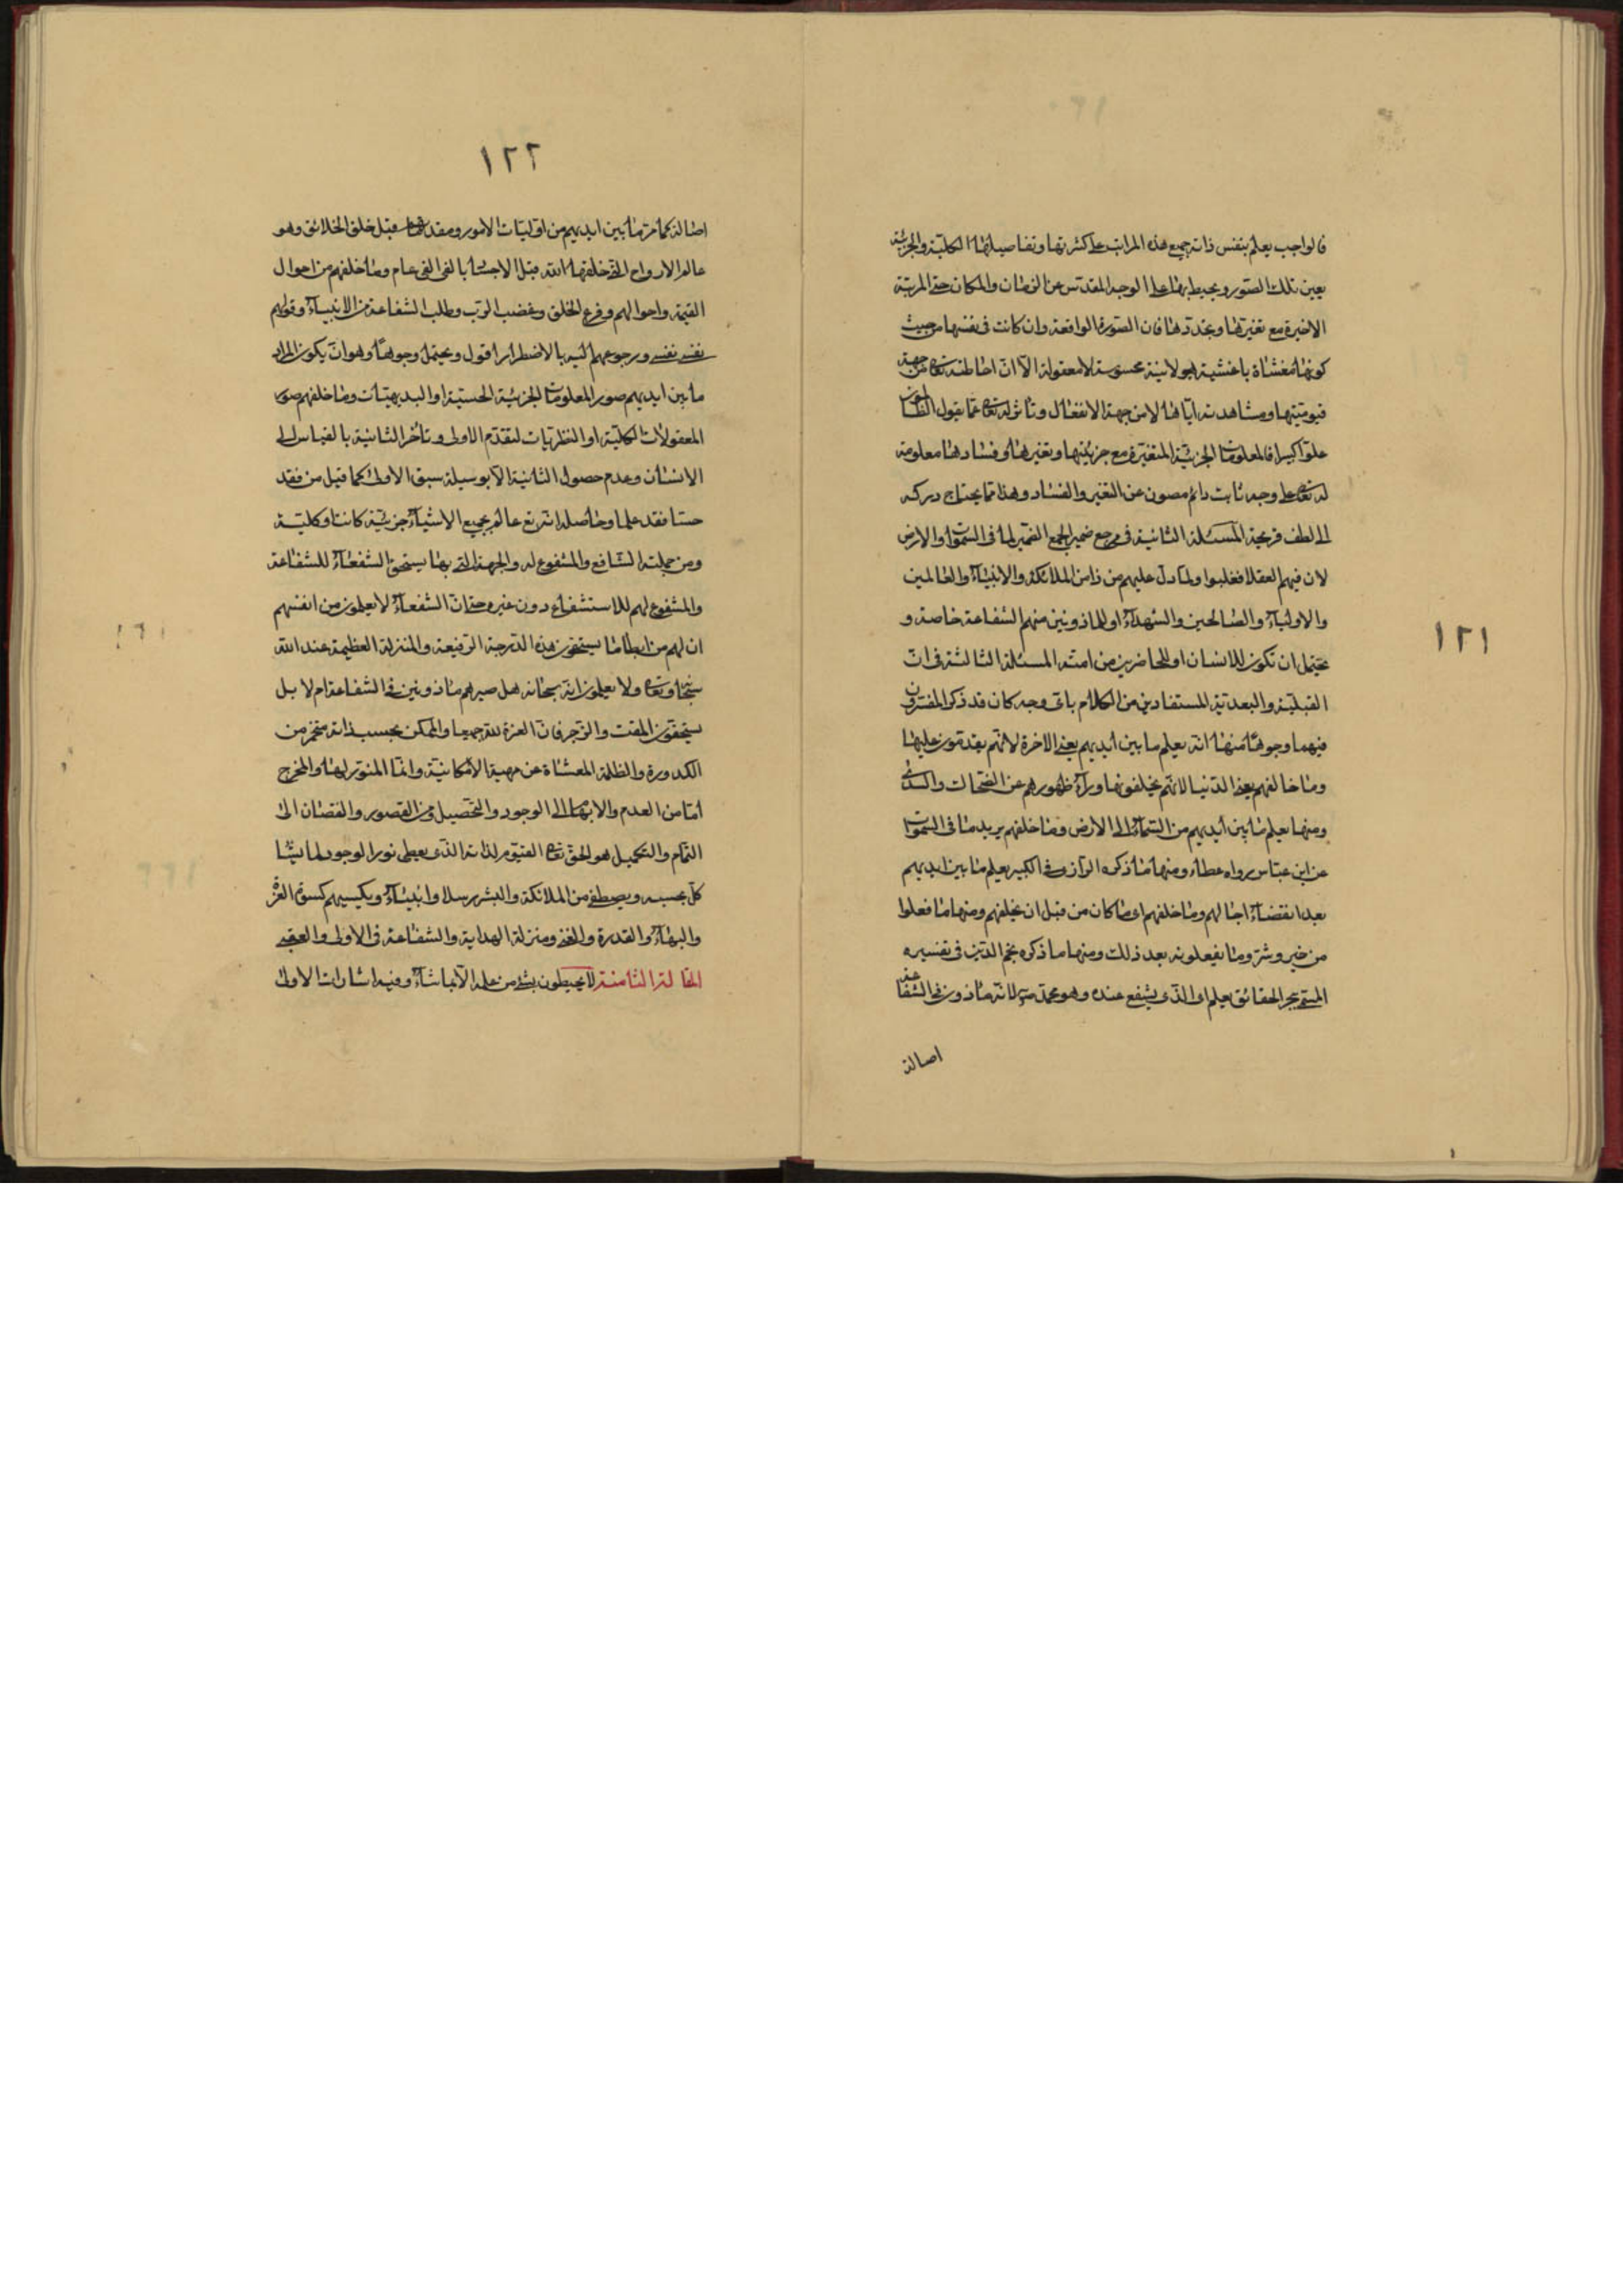 ١٢١
فالواجب يعلم بنفس ذاته جميع هذه المراتب على كثرتها وتفاصيلها الكلية والجزئية
بعين تلك الصور ويحيط بها على الوجه المقدس عن الزمان والمكان حتى المرتبة
الاخيرة مع تغيرها وتجددها فان الصورة الواقعة وان كانت في نفسها من حيث
كونها مغشاة باغشية هيولانية محسوسة لا معقولة الا ان احاطته تعالى من جهة
قيوميتها ومشاهدته اياها لا من جهة الانفعال وتاثر له تعالى عما يقول الظالمون
علوا كبيرا فالمعلومات الجزئية المتغيرة مع جزئيتها وتغيرها وفسادها معلومة
له تعالى على وجه ثابت دائم مصون عن التغير والفساد وهذا مما يحتاج دركه
الى لطف قريحة المسئلة الثانية في مرجع ضمير الجمع الضمير لما في السموات والارض
لان فيهم العقلا فغلبوا ولما دل عليهم من ذا من الملائكة والانبياء والعالمين
والاولياء والصالحين والشهداء او للماذونين منهم الشفاعة خاصة و
يحتمل ان تكون للانسان او للحاضرين من امته المسئلة الثالثة في ان
القبلية والبعدية المستفادين من الكلام باى وجه كان قد ذكر المفسرون
فيهما وجوها منها انه يعلم ما بين ايديهم يعنى الاخرة لانهم يقدمون عليها
وما خالفهم يعنى الدنيا لانهم يخلفونها وراء ظهورهم عن الضحاك والسدى
ومنها يعلم ما بين ايديهم من السماء الى الارض وما خلفهم يريد ما في السموات
عن ابن عباس رواه عطاء ومنها ما ذكره الرازى في الكبير يعلم ما بين ايديهم
بعد انقضاء اجالهم وما خلفهم اى ما كان من قبل ان يخلقهم ومنها ما فعلوا
من خير وشر وما يفعلونه بعد ذلك ومنها ما ذكره نجم الدين في تفسيره
المسمى ببحر الحقائق يعلم اى الذى يشفع عنده وهو محمد ص لانه ماذون في الشفاعة
اصالة
١٢٢
اصالة كما مر ما بين ايديهم من اوليات الامور ومقدماتها قبل خلق الخلائق وهو
عالم الارواح التى خلقها الله قبل الاجساد بالفى الفى عام وما خلفهم من احوال
القيمة واحوالهم وفزع الخلق وغضب الرب وطلب الشفاعة من الانبياء وقولهم
نفسى نفسى ورجوعهم اليه بالاضطرار اقول ويحتمل وجوها وهو ان يكون المراد
ما بين ايديهم صور المعلومات الجزئية الحسية او البديهيات وما خلفهم صور
المعقولات الكلية او النظريات لتقدم الاولى وتأخر الثانية بالقياس الى
الانسان وعدم حصول الثانية الا بوسيلة سبق الاولى كما قيل من فقد
حسا فقد علما وحاصله انه تع عالم بجميع الاشياء جزئية كانت او كلية
ومن جملته الشافع والمشفوع له والجهة التى بها يستحق الشفعاء للشفاعة
والمشفوع لهم للاستشفاع دون غيره حتى ان الشفعاء لا يعلمون من انفسهم
ان لهم من ما يستحقون هذه الدرجة الرفيعة والمنزلة العظيمة عند الله
سبحانه وتعالى ولا يعلمون انه سبحانه هل صيرهم ماذونين في الشفاعة ام لا بل
يستحقون المقت والزجر فان العزة لله جميعا والممكن بحسب ذاته من
الكدورة والظلمة المغشاة عن مهية الامكانية وانما المنور لها والمخرج
من العدم والابهام الى الوجود والتحصيل ومن القصور والنقصان الى
التمام والتكميل هو الحق تعالى القيوم لذاته الذى يعطى نور الوجود لما يشاء
كل بحسبه ويصطفى من الملائكة والبشر رسلا وانبياء ويكسيهم كسوة العز
والبهاء والقدرة والغنى ومنزلة الهداية والشفاعة في الاولى والعقبى
المقالة الثامنة لا يحيطون بشئ من علمه الا بما شاء وفيه اشارات الاولى